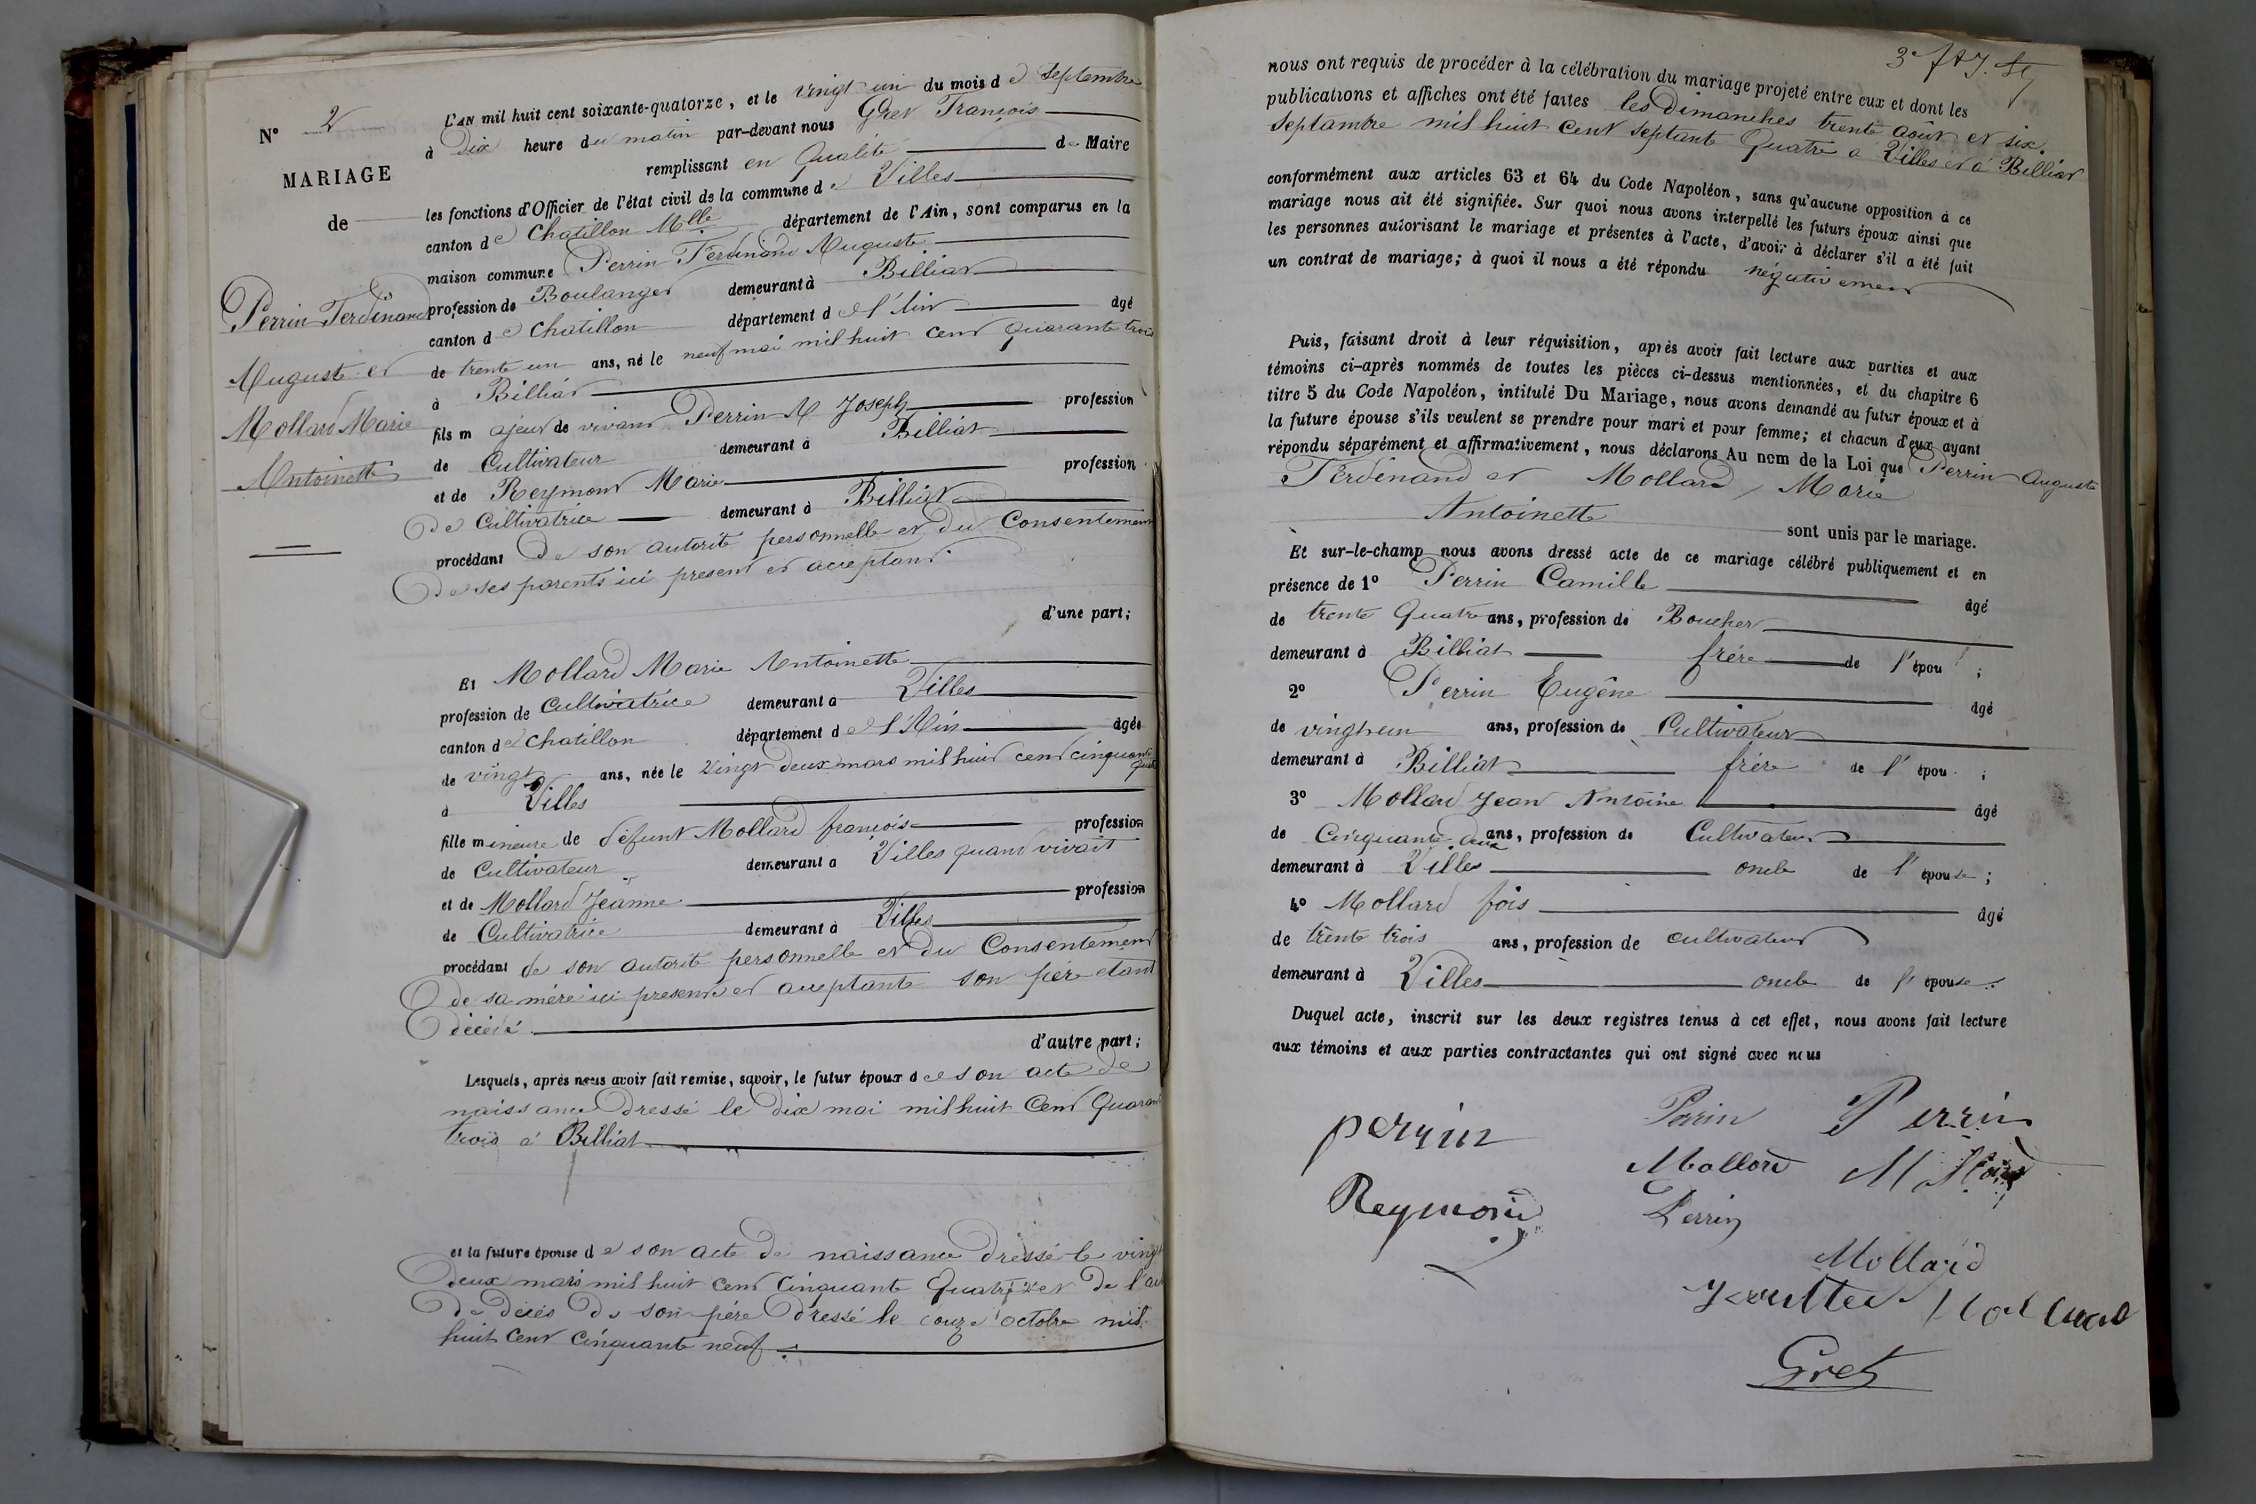 N° 2
MARIAGE
de
Perrin Ferdinand
Auguste et
Mollard Marie
Antoinette
L'AN mil huit cent soixante-quatorze, et le vingt un du mois de Septembre
à Dix heure du matin par-devant nous Gret François
remplissant en Qualité de Maire
les fonctions d'Officier de l'état civil de la commune de Villes
canton de Chatillon Mlle département de l'Ain, sont comparus en la
maison commune Perrin Ferdinand Auguste
profession de Boulanger demeurant à Billiat
canton de Chatillon département de l'Ain âgé
de trente un ans, né le neuf mai mil huit cent quarante trois
à Billiat
fils majeur de vivant Perrin M Joseph profession
de Cultivateur demeurant à Billiat
et de Reymond Marie profession
de Cultivatrice demeurant à Billiat
procédant De son autorité personnelle et du Consentement
De ses parents ici present et acceptant
d'une part;
Et Mollard Marie Antoinette
profession de Cultivatrice demeurant a Villes
canton de Chatillon département de l'Ain âgée
de vingt ans, née le Vingt deux mars mil huit cent cinquante quatre
à Villes
fille mineure de défunt Mollard françois profession
de Cultivateur demeurant a Villes quand vivait
et de Mollard Jeanne profession
de Cultivatrice demeurant à Villes
procédant de son autorité personnelle et du Consentement
De sa mère ici presente et acceptante son père étant
décédé
d'autre part;
Lesquels, après nous avoir fait remise, savoir, le futur époux de son acte de
naissance Dressé le Dix mai mil huit Cent Quarante
trois à Billiat
et la future épouse de son acte de naissance dressé le vingt
Deux mars mil huit cent Cinquante Quatre et De l'acte
De décès De son père Dressé le onze octobre mil
huit Cent Cinquante neuf
nous ont requis de procéder à la célébration du mariage projeté entre eux et dont les
publications et affiches ont été faites les Dimanches trente août et six
Septambre mil huit cent septante Quatre a Villes et à Billiat
conformément aux articles 63 et 64 du Code Napoléon, sans qu'aucune opposition à ce
mariage nous ait été signifiée. Sur quoi nous avons interpellé les futurs époux ainsi que
les personnes autorisant le mariage et présentes à l'acte, d'avoir à déclarer s'il a été fait
un contrat de mariage; à quoi il nous a été répondu négativement
Puis, faisant droit à leur réquisition, après avoir fait lecture aux parties et aux
témoins ci-après nommés de toutes les pièces ci-dessus mentionnées, et du chapitre 6
titre 5 du Code Napoléon, intitulé Du Mariage, nous avons demandé au futur époux et à
la future épouse s'ils veulent se prendre pour mari et pour femme; et chacun d'eux ayant
répondu séparément et affirmativement, nous déclarons Au nom de la Loi que Perrin Auguste
Ferdinand et Mollard Marie
Antoinette sont unis par le mariage.
Et sur-le-champ nous avons dressé acte de ce mariage célébré publiquement et en
présence de 1° Perrin Camille âgé
de trente Quatre ans, profession de Boucher
demeurant à Billiat frére de l'épou ;
2° Perrin Eugêne âgé
de vingt un ans, profession de Cultivateur
demeurant à Billiat frére de l'épou ;
3° Mollard Jean Antoine âgé
de Cinquante deux ans, profession de Cultivateur
demeurant à Villes oncle de l'épouse ;
4° Mollard fois âgé
de trente trois ans, profession de cultivateur
demeurant à Villes oncle de l'épouse.
Duquel acte, inscrit sur les deux registres tenus à cet effet, nous avons fait lecture
aux témoins et aux parties contractantes qui ont signé avec nous
perrin Perrin Perrin
Mollard Mollard
Reymond Perrin
Mollard
Gret